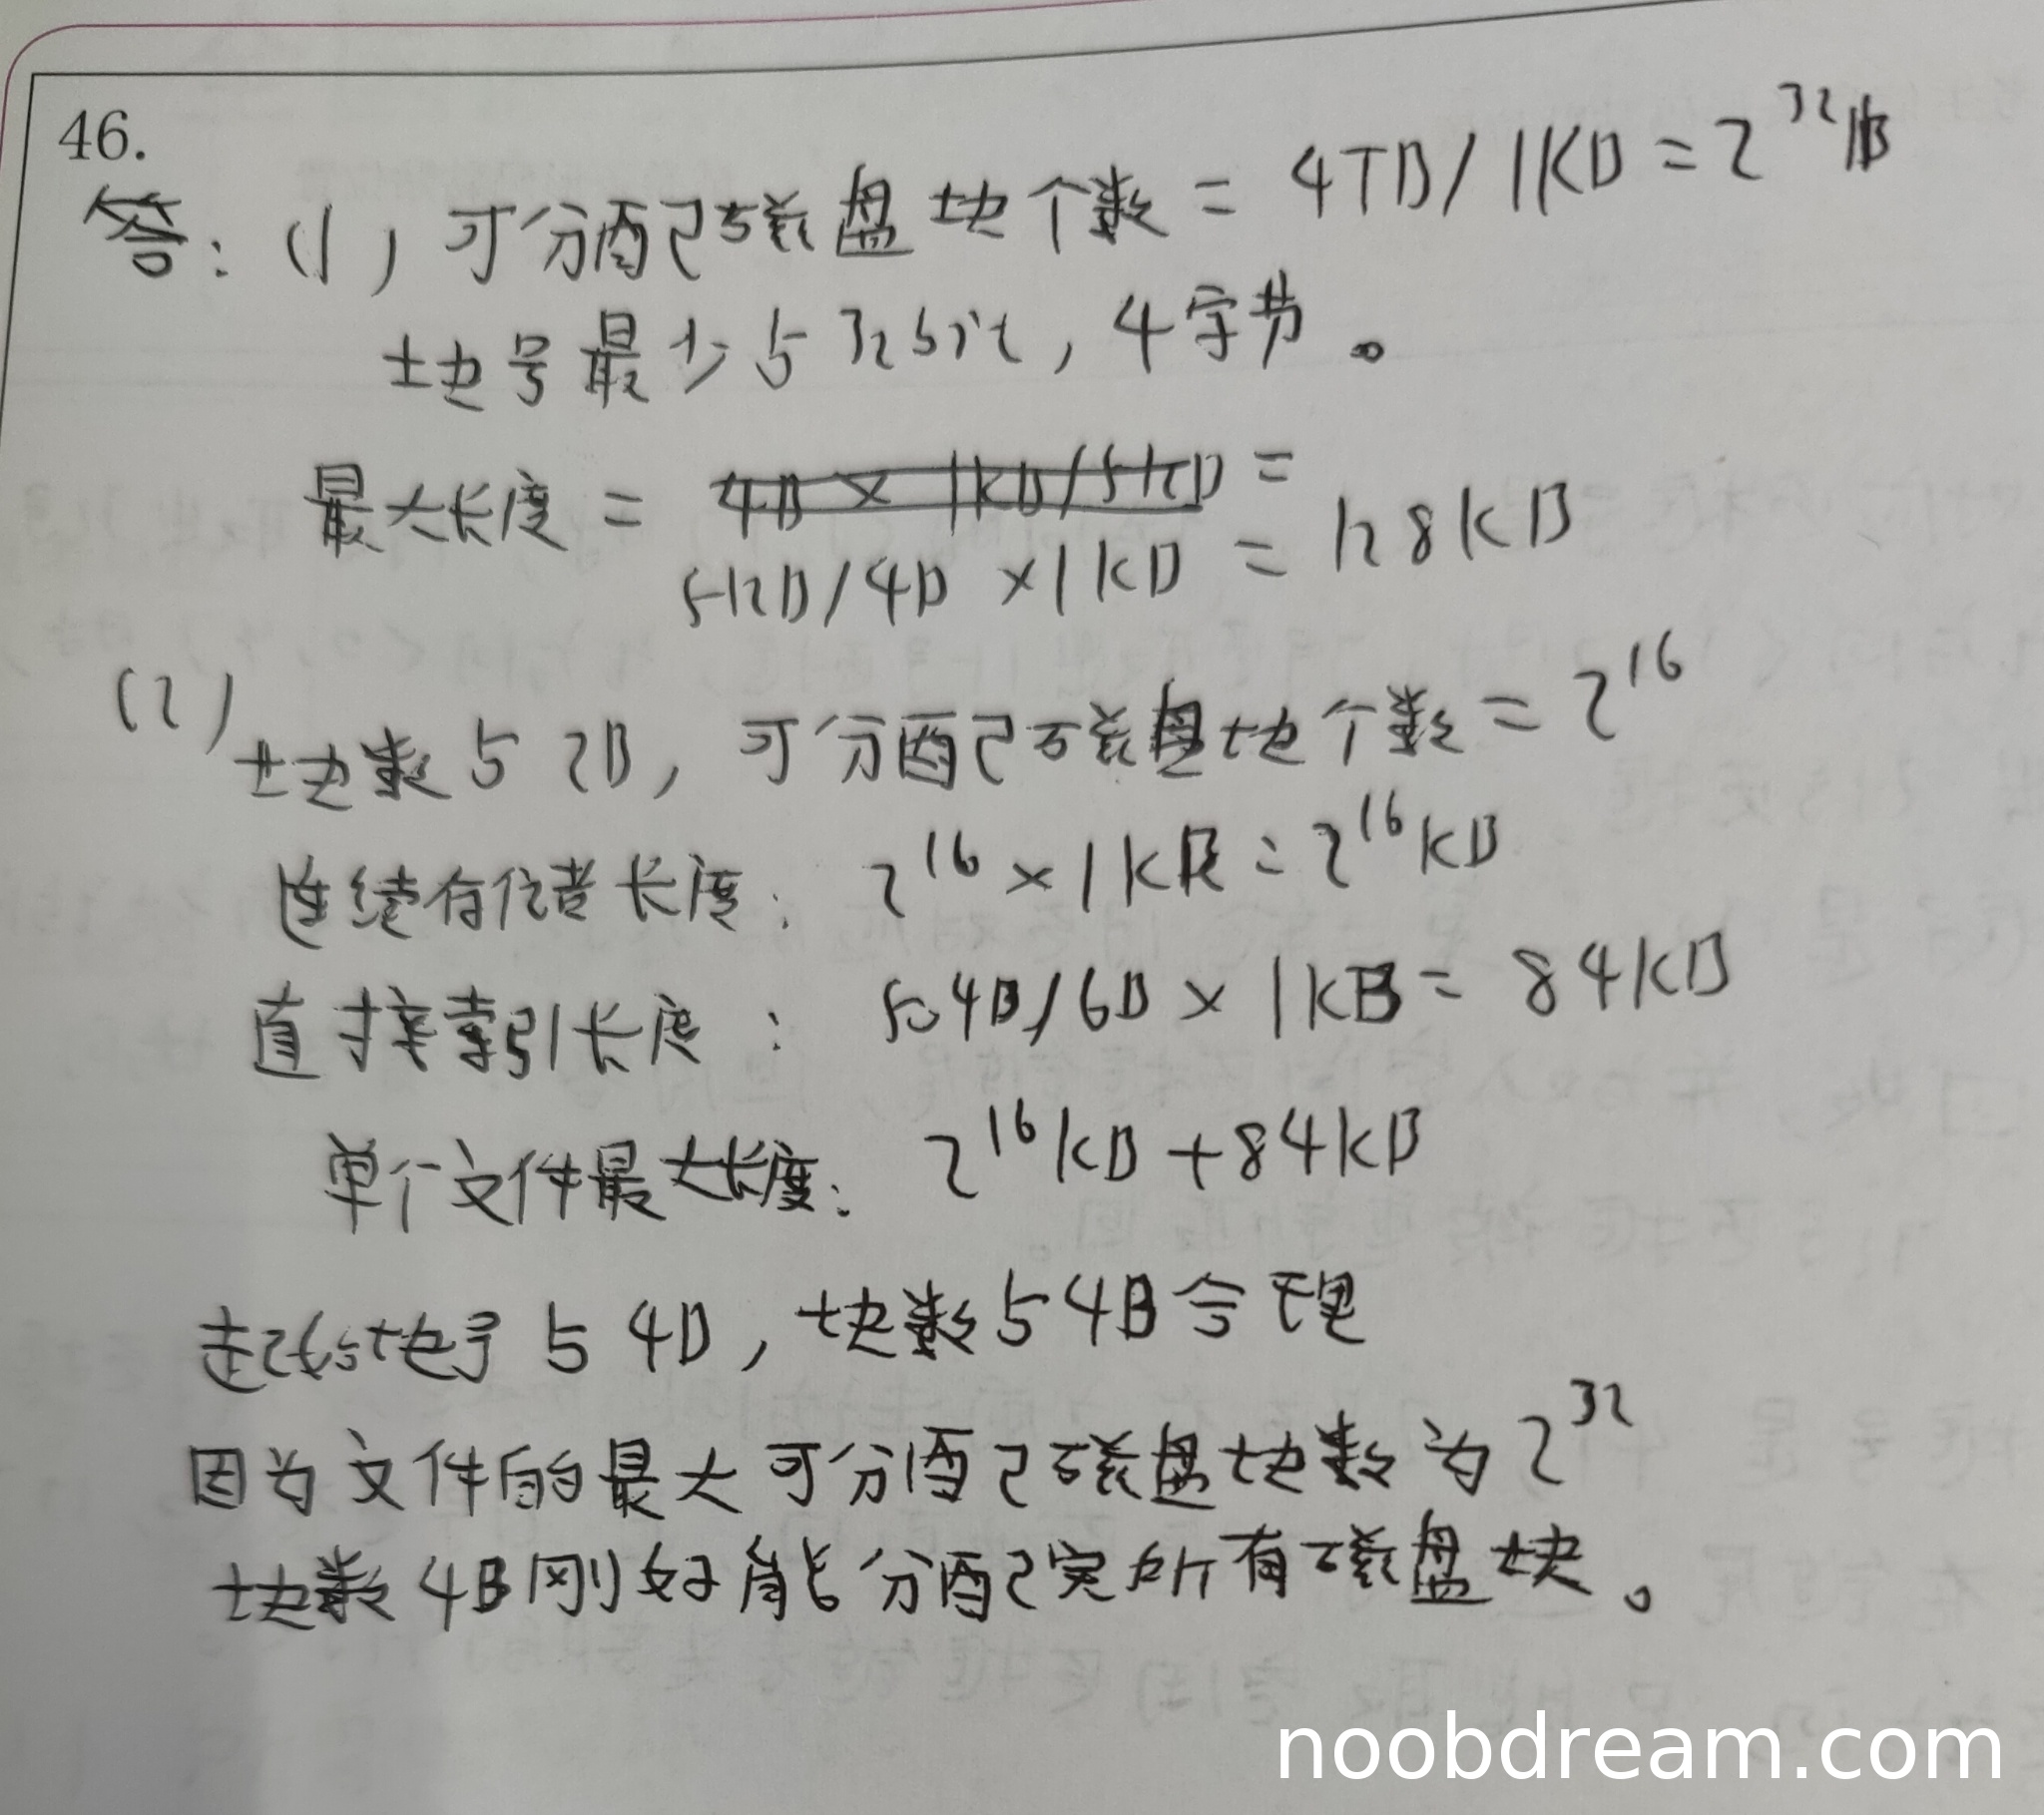 46.
答：(1) 可分配磁盘块个数 = 4TB/1KB = 2^32
块号最少占32bit，4字节。
最大长度 = 4B × 1KB/512B =
512B/4B × 1KB = 128KB
(2) 块数占2B，可分配磁盘块个数 = 2^16
连续存储长度：2^16 × 1KB = 2^16KB
直接索引长度：504B/6B × 1KB = 84KB
单个文件最大长度：2^16KB + 84KB
起始块号占4B，块数占4B合理
因为文件的最大可分配磁盘块数为2^32
块数4B刚好能分配完所有磁盘块。
noobdream.com